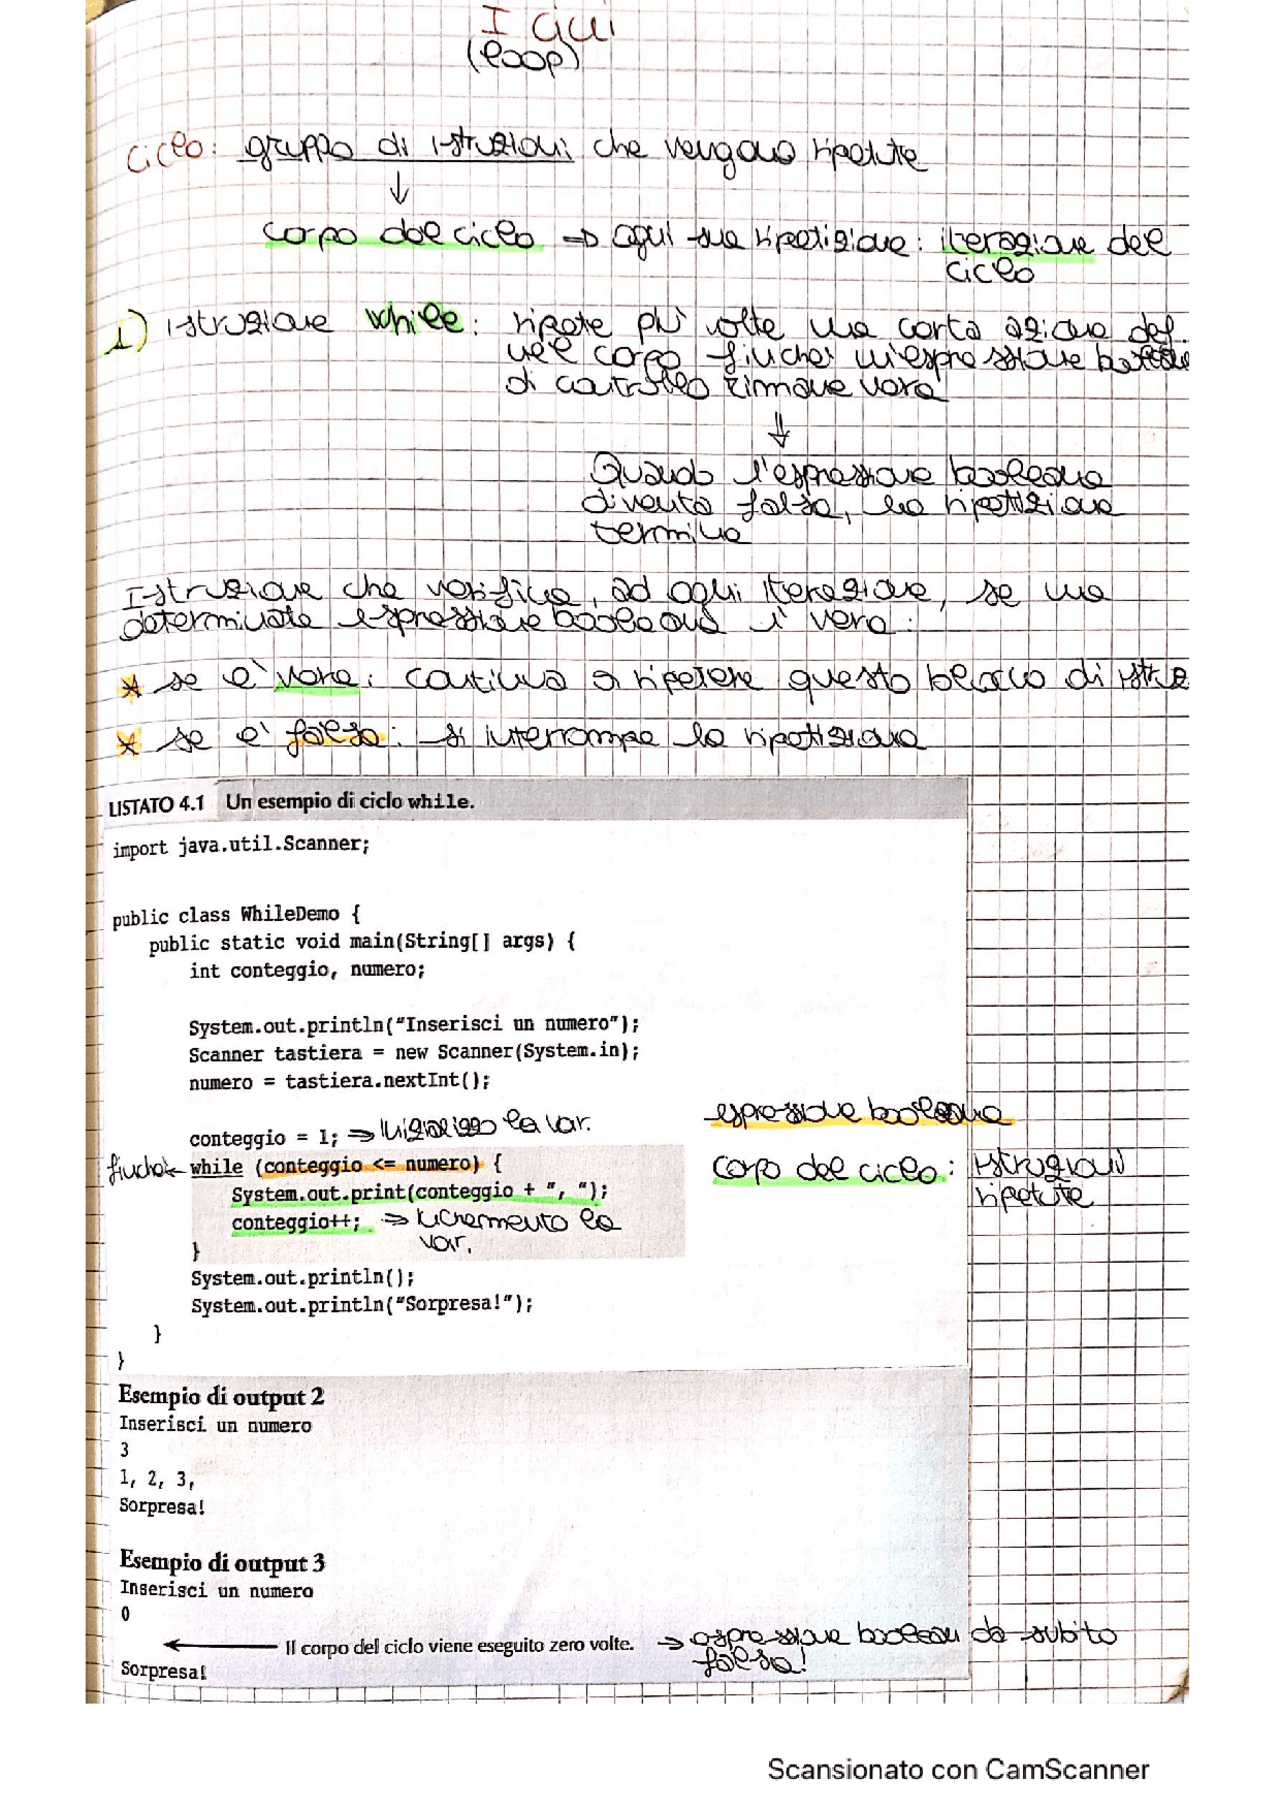 I cicli
(loop)
ciclo: gruppo di istruzioni che vengono ripetute
↓
corpo del ciclo → ogni sua ripetizione: iterazione del
ciclo
1) istruzione while: ripete più volte una certa azione def.
nel corpo finché un'espressione booleana
di controllo rimane vera
↓
Quando l'espressione booleana
diventa falsa, la ripetizione
termina
Istruzione che verifica, ad ogni iterazione, se una
determinata espressione booleana è vera:
* se è vera: continua a ripetere questo blocco di istruz
* se è falsa: si interrompe la ripetizione
LISTATO 4.1 Un esempio di ciclo while.
import java.util.Scanner;
public class WhileDemo {
public static void main(String[] args) {
int conteggio, numero;
System.out.println("Inserisci un numero");
Scanner tastiera = new Scanner(System.in);
numero = tastiera.nextInt();
espressione booleana
conteggio = 1; ⇒ inizializzo la var.
finché ← while (conteggio <= numero) {
corpo del ciclo: istruzioni
ripetute
System.out.print(conteggio + ", ");
conteggio++; ⇒ incremento la
var.
}
System.out.println();
System.out.println("Sorpresa!");
}
}
Esempio di output 2
Inserisci un numero
3
1, 2, 3,
Sorpresa!
Esempio di output 3
Inserisci un numero
0
← Il corpo del ciclo viene eseguito zero volte. → espressione da subito
falsa!
Sorpresa!
Scansionato con CamScanner